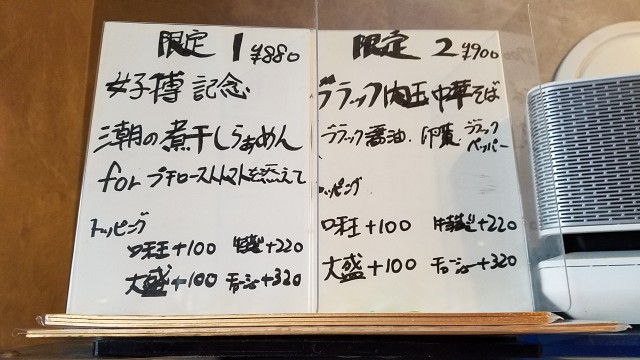 限定 1 ¥880
女子博 記念
三潮の煮干しらぁめん
for プチローストトマトを添えて
トッピング
味玉+100 特製+220
大盛+100 チャーシュー+320
限定 2 ¥900
ブラック肉玉中華そば
ブラック醤油. 卵黄. ブラックペッパー
トッピング
味玉+100 特製+220
大盛+100 チャーシュー+320